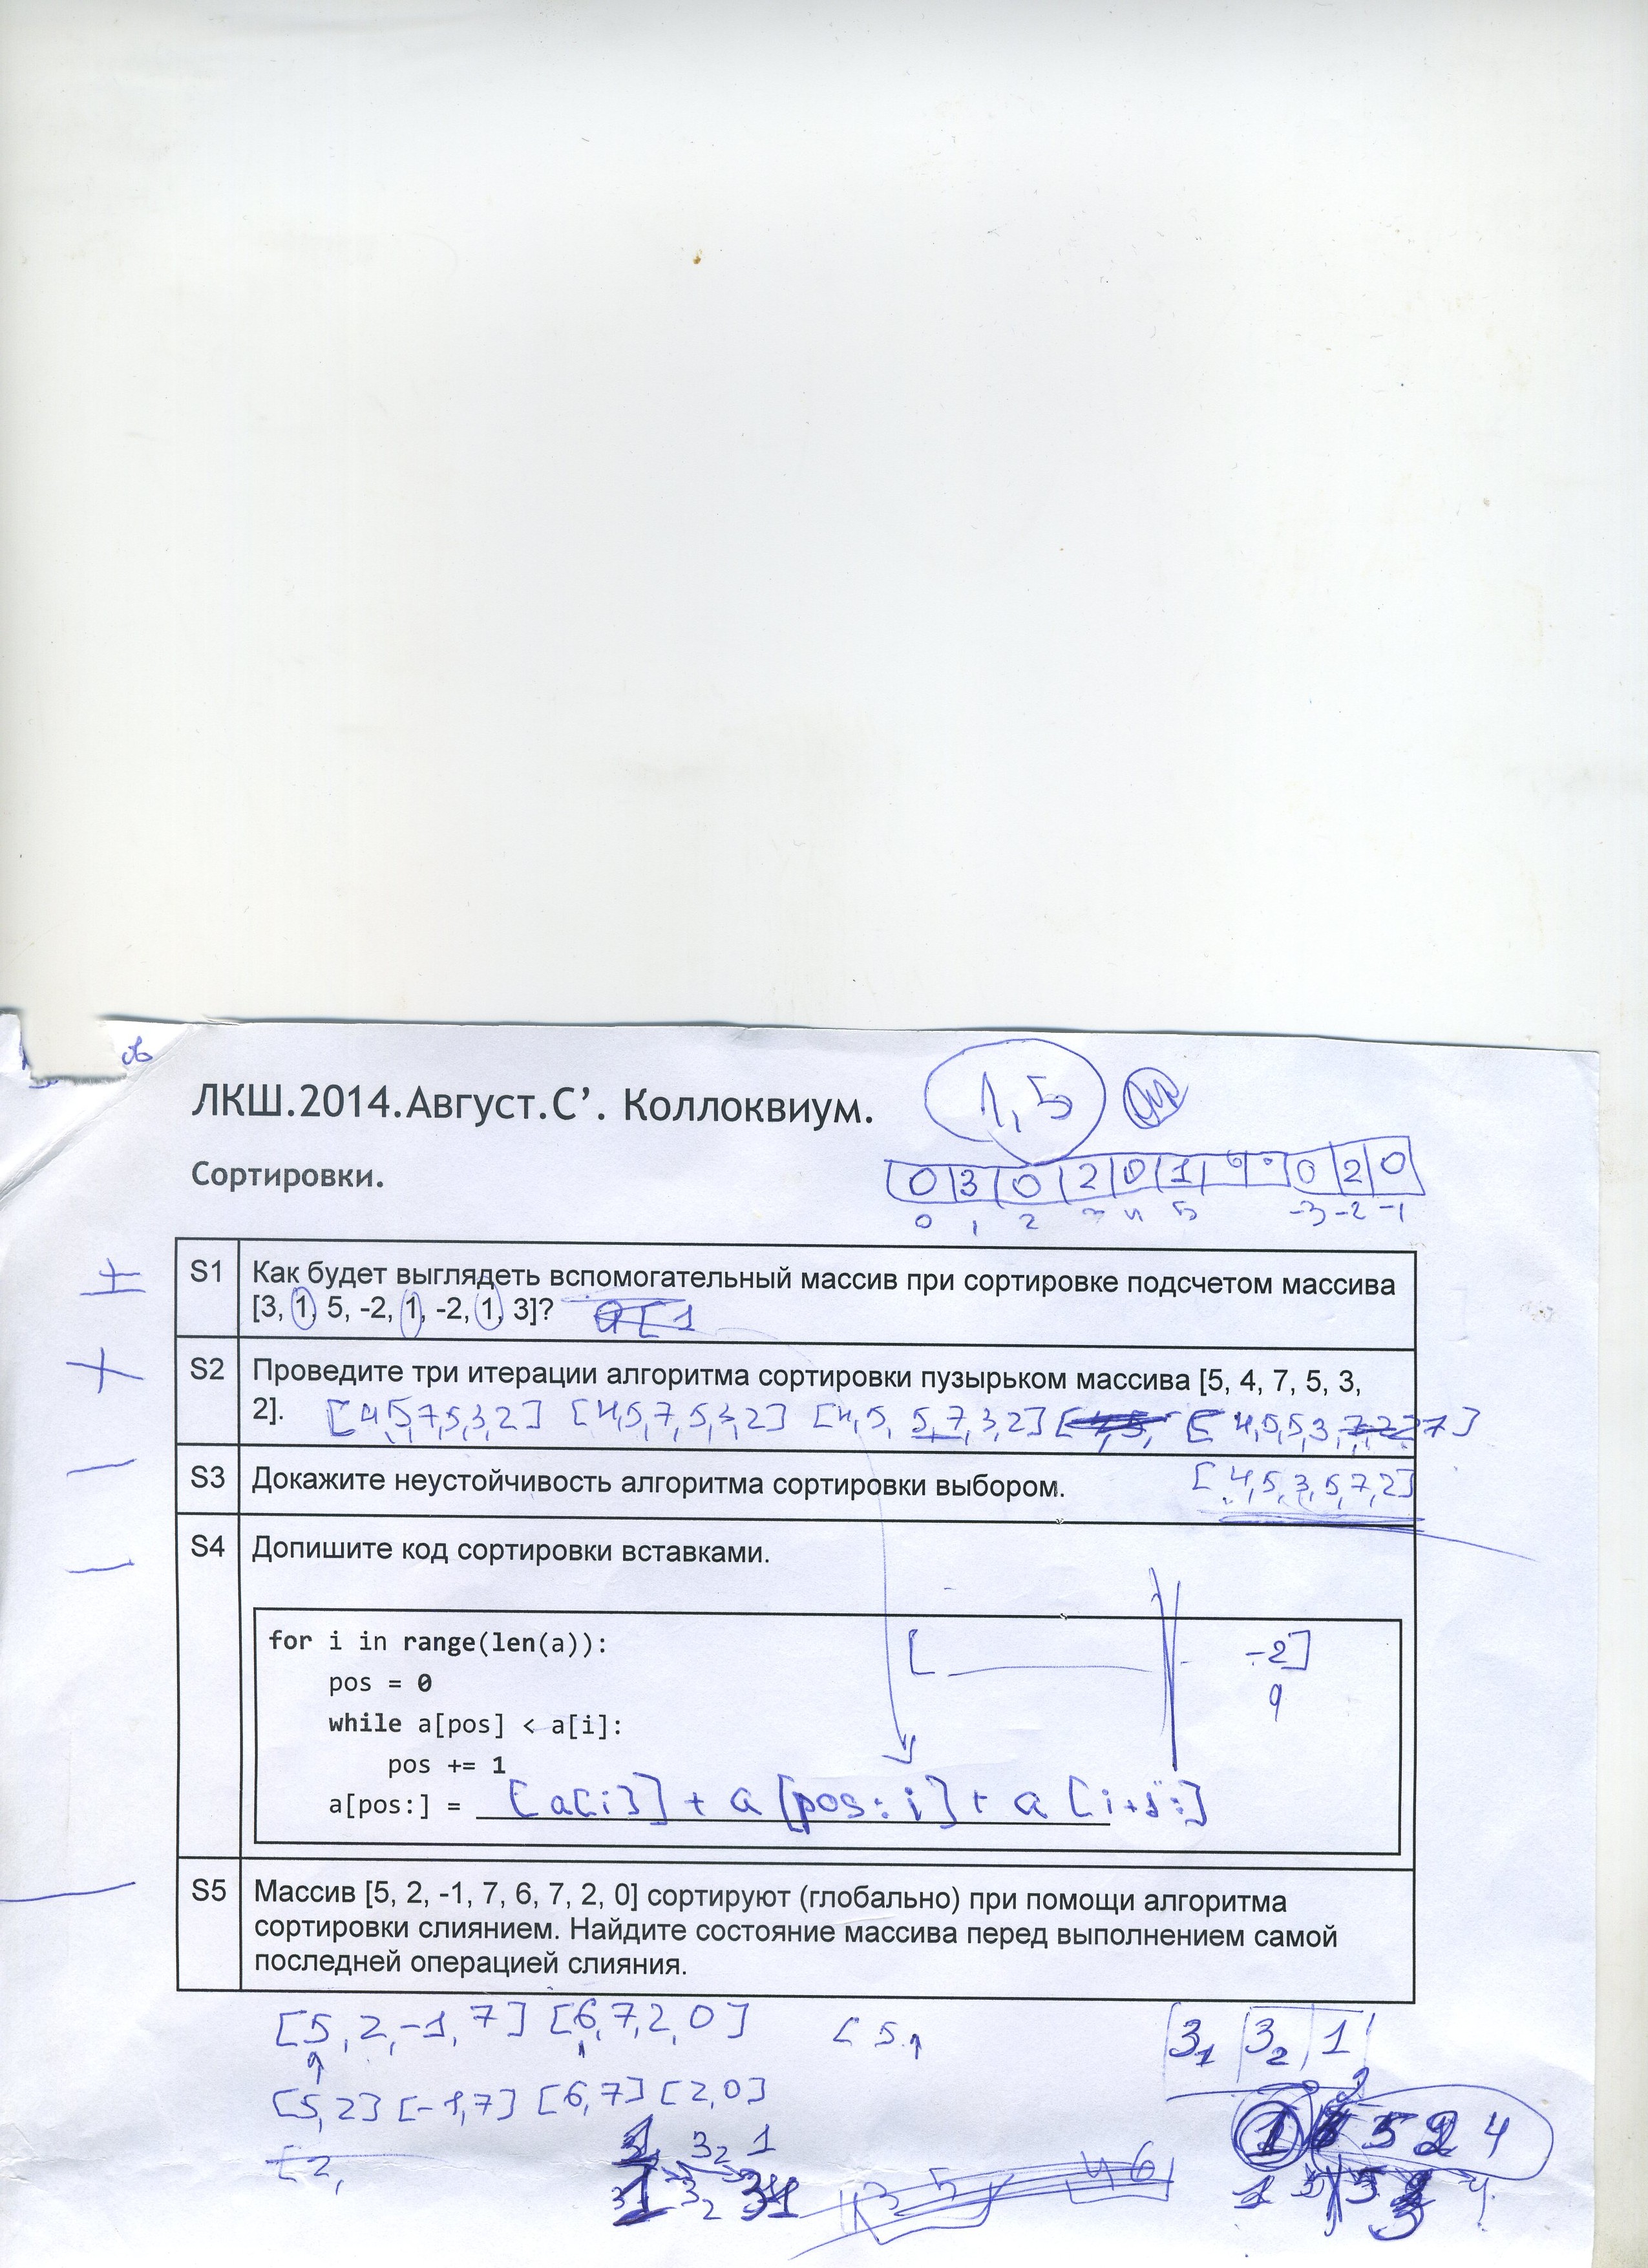 ЛКШ.2014.Август.С’. Коллоквиум.
1,5
Сортировки.
0 3 0 2 0 1 0 0 0 2 0
0 1 2 3 4 5 -3 -2 -1
±
S1 Как будет выглядеть вспомогательный массив при сортировке подсчетом массива
[3, 1, 5, -2, 1, -2, 1, 3]?
+
S2 Проведите три итерации алгоритма сортировки пузырьком массива [5, 4, 7, 5, 3,
2]. [4,5,7,5,3,2] [4,5,7,5,3,2] [4,5,5,7,3,2] [4,5,5,3, 7]
[4,5,3,5,7,2]
–
S3 Докажите неустойчивость алгоритма сортировки выбором.
–
S4 Допишите код сортировки вставками.
for i in range(len(a)):
[ -2]
pos = 0
9
while a[pos] < a[i]:
pos += 1
a[pos:] = [a[i]] + a[pos:i] + a[i+1:]
–
S5 Массив [5, 2, -1, 7, 6, 7, 2, 0] сортируют (глобально) при помощи алгоритма
сортировки слиянием. Найдите состояние массива перед выполнением самой
последней операцией слияния.
[5,2,-1,7] [6,7,2,0] [5, 3₁ 3₂ 1
[5,2] [-1,7] [6,7] [2,0]
[2,
3₂ 1